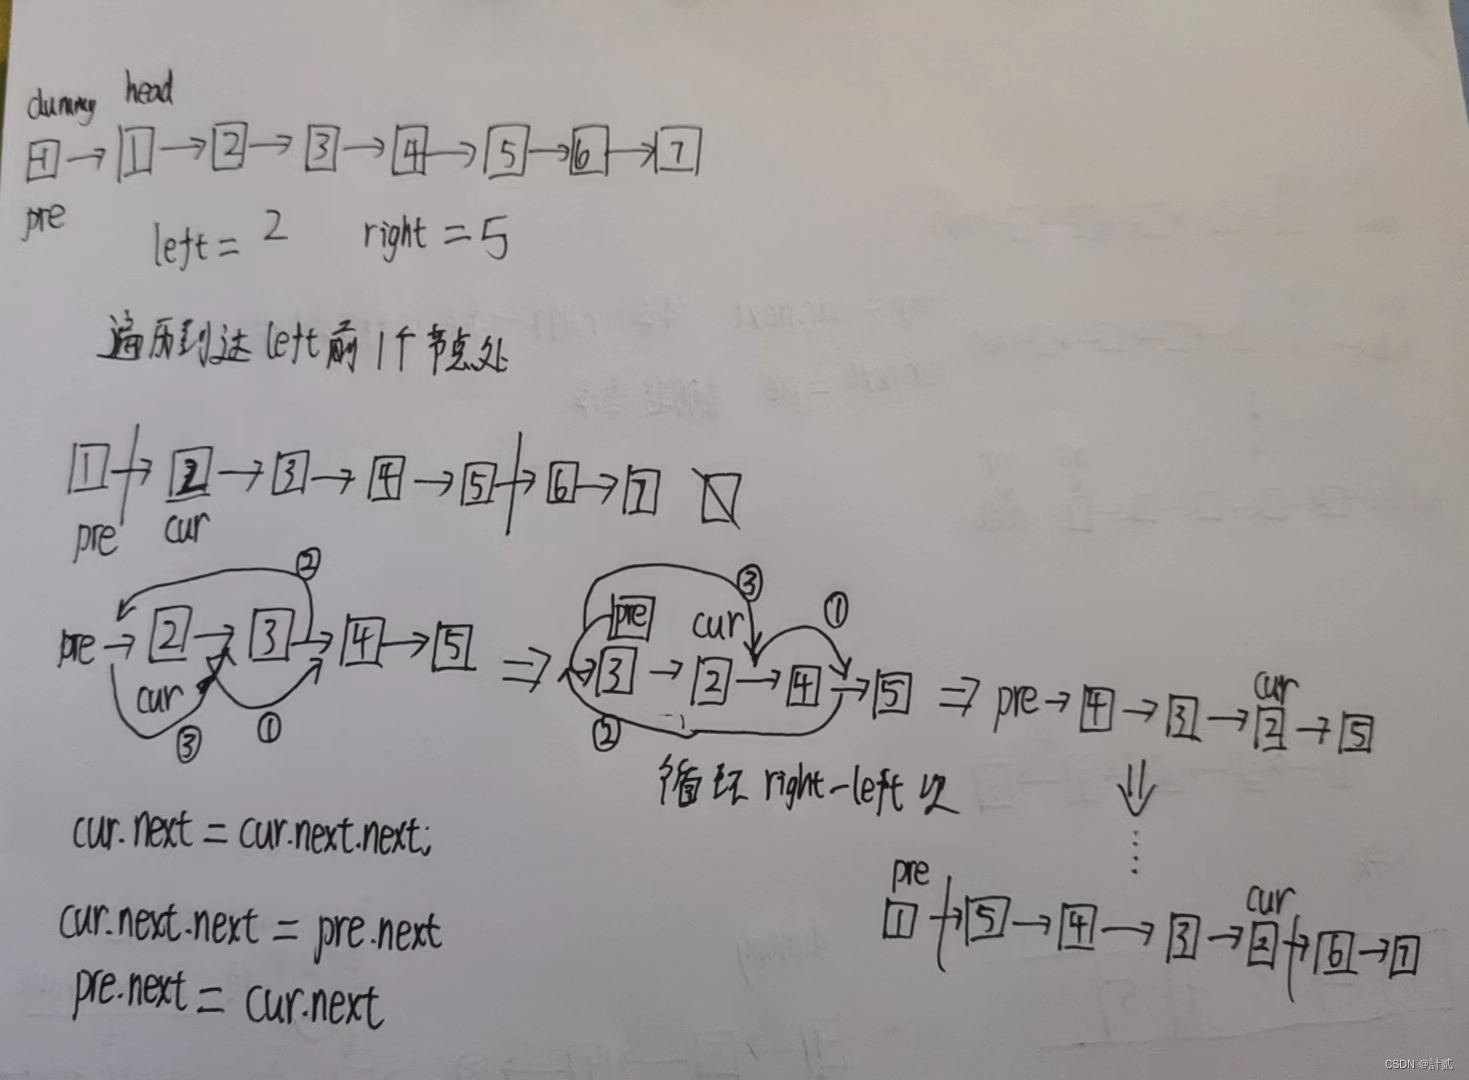 dummy head
-1 → 1 → 2 → 3 → 4 → 5 → 6 → 7
pre
left = 2 right = 5
遍历到达 left 前 1个节点处
1 → 2 → 3 → 4 → 5 → 6 → 7
pre cur
②
pre → 2 → 3 → 4 → 5
cur
③ ①
⇒
③ ①
pre cur
3 → 2 → 4 → 5
②
⇒ cur
pre → 4 → 3 → 2 → 5
循环 right-left 次
⇓
cur.next = cur.next.next;
cur.next.next = pre.next
pre.next = cur.next
pre cur
1 → 5 → 4 → 3 → 2 → 6 → 7
CSDN @計贰